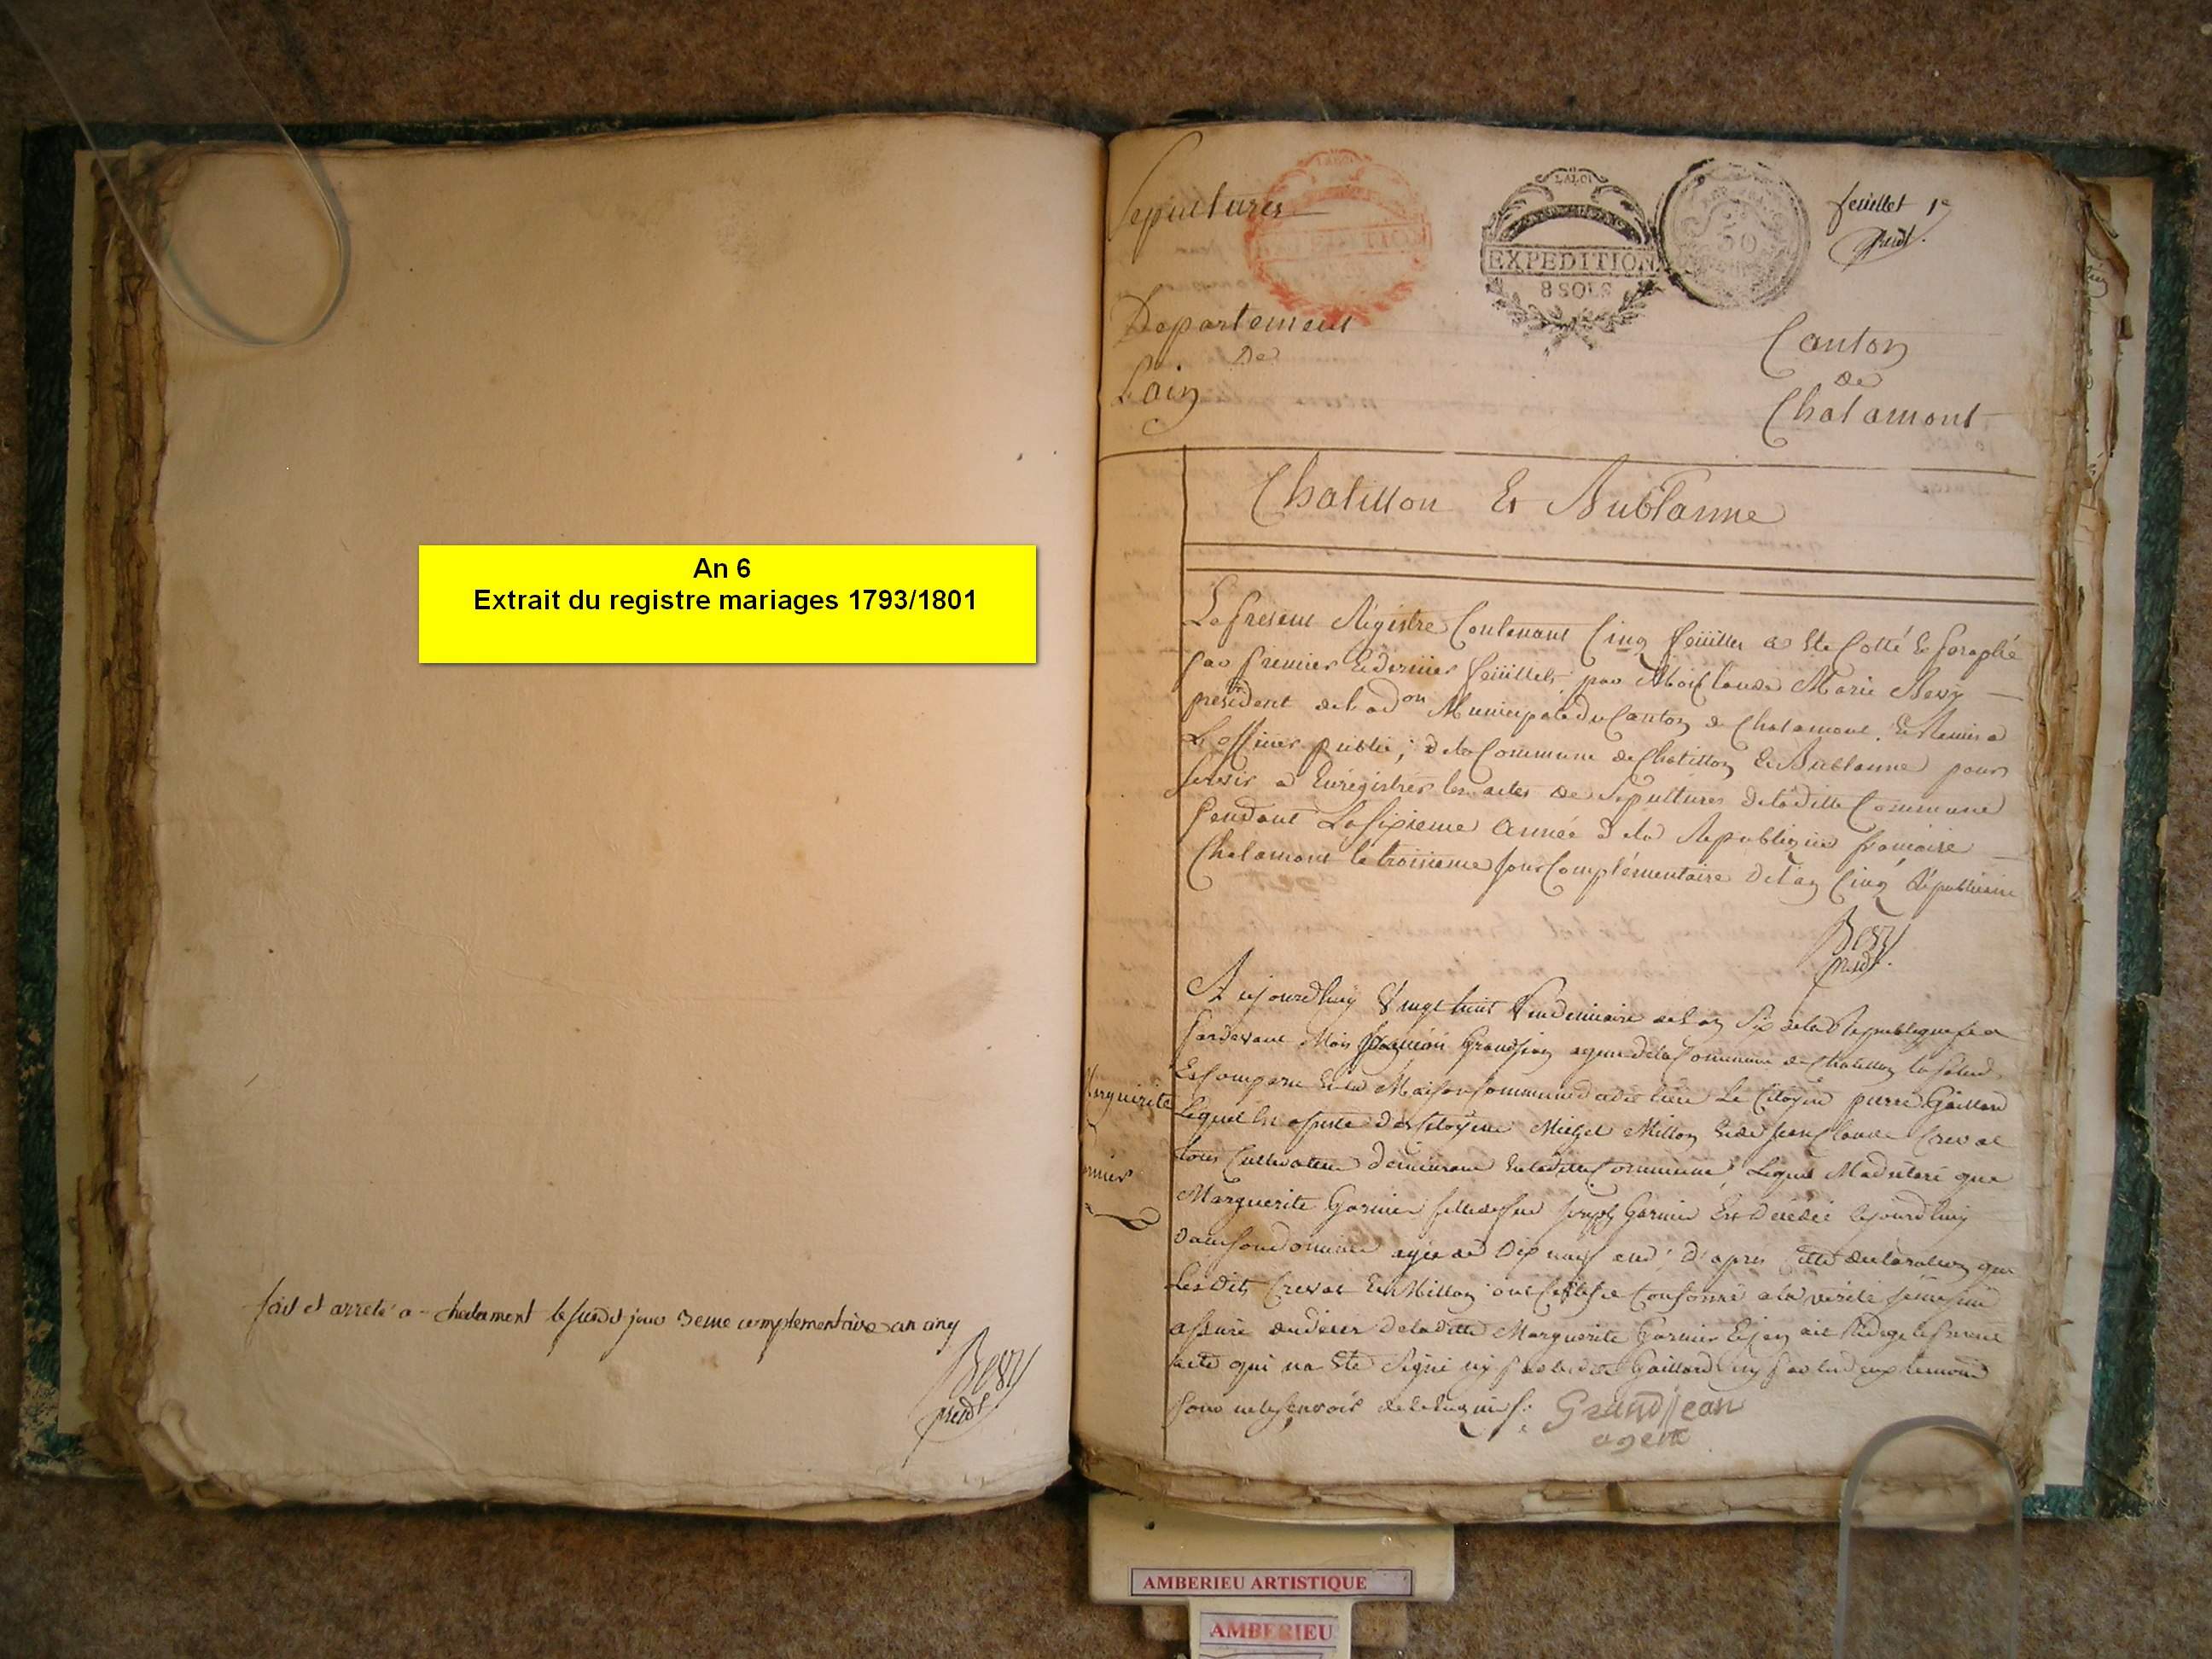 An 6
Extrait du registre mariages 1793/1801
fait et arreté a chalamont le susdit jour 3eme complementaire an cinq
Bevy
presdt
Sepultures
EXPEDITION
LALOI
EXPEDITION
8 SOLS
50
feuillet 1er
presdt.
Departement
De
Lain
Canton
de
Chalamont
Chatillon Et Aublanne
Le present Régistre Contenant Cinq feüilles a Ete Cotté & paraphé
par premier & dernier feüillets par Moi Claude Marie Bevy
président de l'adon Municipale du Canton de Chalamont. & Remis a
L'officier public, de la Commune de Chatillon & Aublanne pour
servir a Enrégistrer les actes de Sepultures de laditte Commune
pendant La sixieme année de la Republique francaise
Chalamont le troisieme jour Complémentaire de l'an Cinq Républicain
Bevy
presdt.
Aujourdhuy Vingt huit Vendemiaire de l'an Six de la Republique
pardevant Moi Grandjean agent de la Commune de Chatillon la palud
Est Comparu en la Maison Commune dudit lieu Le Citoyen pierre Gaillard
Marguerite
Lequel assisté des Citoyens Michel Millon & de Jean Claude Crevat
tous Cultivateurs demeurant en laditte Commune, Lequel Ma declaré que
Marguerite Garnier fille de feu Joseph Garnier Est decedée aujourdhuy
dans son domicile agée de Dix neuf ans, d'apres cette declaration que
Les dits Crevat & Millon ont Certifié Conforme a la verité
assuré du deces de laditte Marguerite Garnier & j'en ait Redigé le present
acte qui na Eté Signé ny par ledit Gaillard ny par les deux temoins
pour ne le scavoir de ce Enquis.
Grandjean
agent
AMBERIEU ARTISTIQUE
AMBERIEU